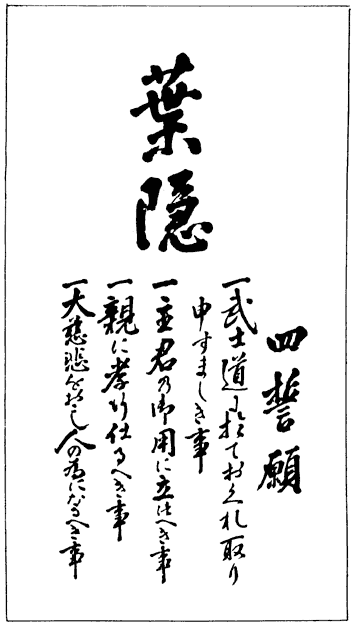 葉隠
四誓願
一武士道に於ておくれ取り
申すましき事
一主君の御用に立つへき事
一親に孝行仕るへき事
一大慈悲をおこし人の為になるへき事